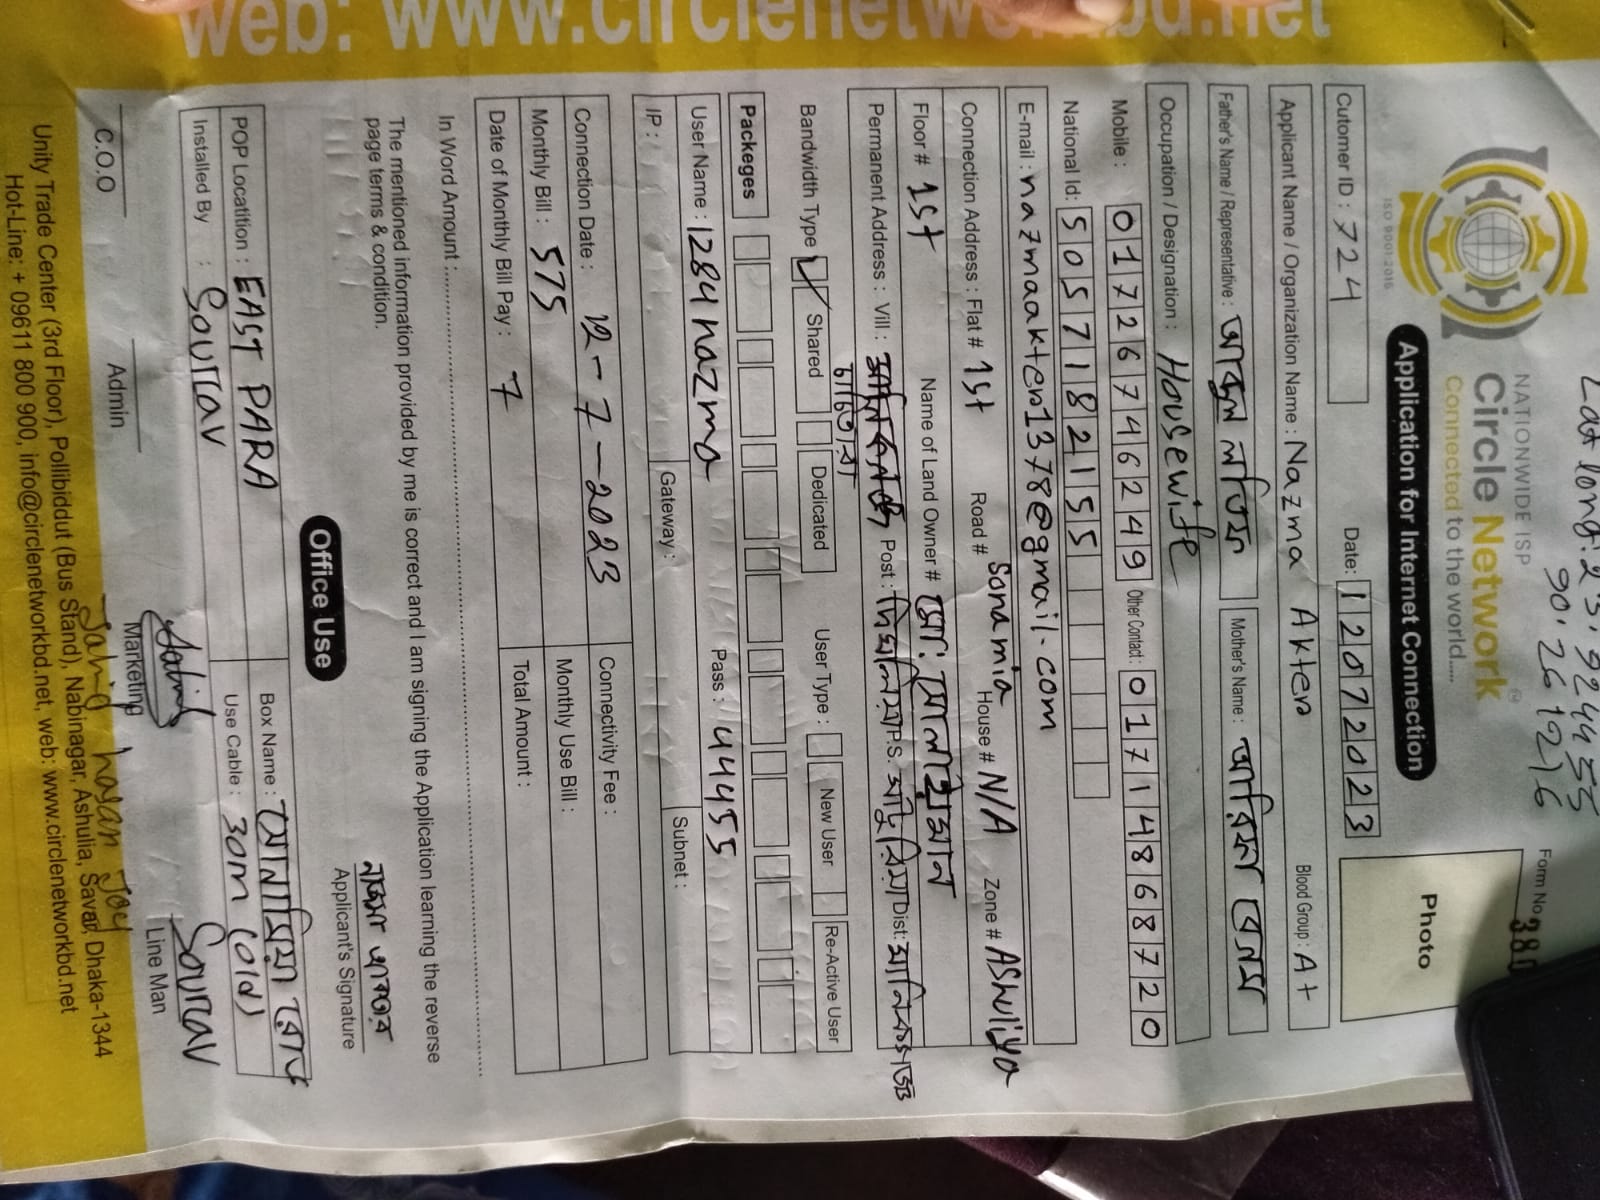 Lat long: 23.924455
90.261216
Form No. 380
NATIONWIDE ISP
Circle Network
Connected to the world.....
ISO 9001:2015
Application for Internet Connection
Photo
Cutomer ID : 724
Date: 12072023
Applicant Name / Organization Name : Nazma Akter
Blood Group : A+
Father's Name / Representative :
Mother's Name :
Occupation / Designation : Housewife
Mobile : 01726746249 Other Contact : 01714868720
National Id: 5057182155
E-mail : nazmaakter1378@gmail.com
Connection Address : Flat # 1st Road # Sonamia House # N/A Zone # Ashuliya
Floor # 1st Name of Land Owner # মো: সোলাইমান
Permanent Address : Vill : Post : P.S. Dist: মানিকগঞ্জ
Bandwidth Type Shared Dedicated User Type : New User Re-Active User
Packeges
User Name : 1284nazma Pass : 44455
IP : Gateway : Subnet :
Connection Date : 12-7-2023 Connectivity Fee :
Monthly Bill : 575 Monthly Use Bill :
Date of Monthly Bill Pay : 7 Total Amount :
In Word Amount :
The mentioned information provided by me is correct and I am signing the Application learning the reverse
page terms & condition.
নাজমা আক্তার
Applicant's Signature
Office Use
POP Locatition : EAST PARA Box Name : সোনামিয়া রোড
Installed By : Sourav Use Cable : 30m (old)
Sourav
C.O.O Admin Marketing Line Man
Jahid hasan Joy
Unity Trade Center (3rd Floor), Pollibiddut (Bus Stand), Nabinagar, Ashulia, Savar, Dhaka-1344
Hot-Line: + 09611 800 900, info@circlenetworkbd.net, web: www.circlenetworkbd.net
web: www.circlenetworkbd.net